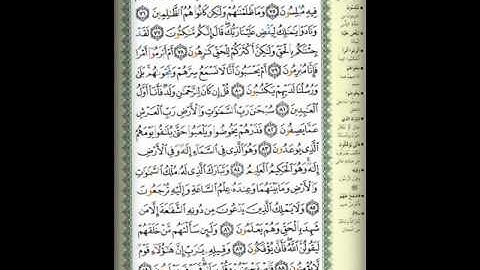 فِيهِ مُبْلِسُونَ ۝٧٥ وَمَا ظَلَمْنَٰهُمْ وَلَٰكِن كَانُوا۟ هُمُ ٱلظَّٰلِمِينَ ۝٧٦
وَنَادَوْا۟ يَٰمَٰلِكُ لِيَقْضِ عَلَيْنَا رَبُّكَ قَالَ إِنَّكُم مَّٰكِثُونَ ۝٧٧ لَقَدْ
جِئْنَٰكُم بِٱلْحَقِّ وَلَٰكِنَّ أَكْثَرَكُمْ لِلْحَقِّ كَٰرِهُونَ ۝٧٨ أَمْ أَبْرَمُوٓا۟ أَمْرًا
فَإِنَّا مُبْرِمُونَ ۝٧٩ أَمْ يَحْسَبُونَ أَنَّا لَا نَسْمَعُ سِرَّهُمْ وَنَجْوَىٰهُم بَلَىٰ
وَرُسُلُنَا لَدَيْهِمْ يَكْتُبُونَ ۝٨٠ قُلْ إِن كَانَ لِلرَّحْمَٰنِ وَلَدٌ فَأَنَا۠ أَوَّلُ
ٱلْعَٰبِدِينَ ۝٨١ سُبْحَٰنَ رَبِّ ٱلسَّمَٰوَٰتِ وَٱلْأَرْضِ رَبِّ ٱلْعَرْشِ
عَمَّا يَصِفُونَ ۝٨٢ فَذَرْهُمْ يَخُوضُوا۟ وَيَلْعَبُوا۟ حَتَّىٰ يُلَٰقُوا۟ يَوْمَهُمُ
ٱلَّذِى يُوعَدُونَ ۝٨٣ وَهُوَ ٱلَّذِى فِى ٱلسَّمَآءِ إِلَٰهٌ وَفِى ٱلْأَرْضِ
إِلَٰهٌ وَهُوَ ٱلْحَكِيمُ ٱلْعَلِيمُ ۝٨٤ وَتَبَارَكَ ٱلَّذِى لَهُۥ مُلْكُ ٱلسَّمَٰوَٰتِ
وَٱلْأَرْضِ وَمَا بَيْنَهُمَا وَعِندَهُۥ عِلْمُ ٱلسَّاعَةِ وَإِلَيْهِ تُرْجَعُونَ
۝٨٥ وَلَا يَمْلِكُ ٱلَّذِينَ يَدْعُونَ مِن دُونِهِ ٱلشَّفَٰعَةَ إِلَّا مَن
شَهِدَ بِٱلْحَقِّ وَهُمْ يَعْلَمُونَ ۝٨٦ وَلَئِن سَأَلْتَهُم مَّنْ خَلَقَهُمْ
لَيَقُولُنَّ ٱللَّهُ فَأَنَّىٰ يُؤْفَكُونَ ۝٨٧ وَقِيلِهِۦ يَٰرَبِّ إِنَّ هَٰٓؤُلَآءِ قَوْمٌ
لَّا يُؤْمِنُونَ ۝٨٨ فَٱصْفَحْ عَنْهُمْ وَقُلْ سَلَٰمٌ فَسَوْفَ يَعْلَمُونَ ۝٨٩